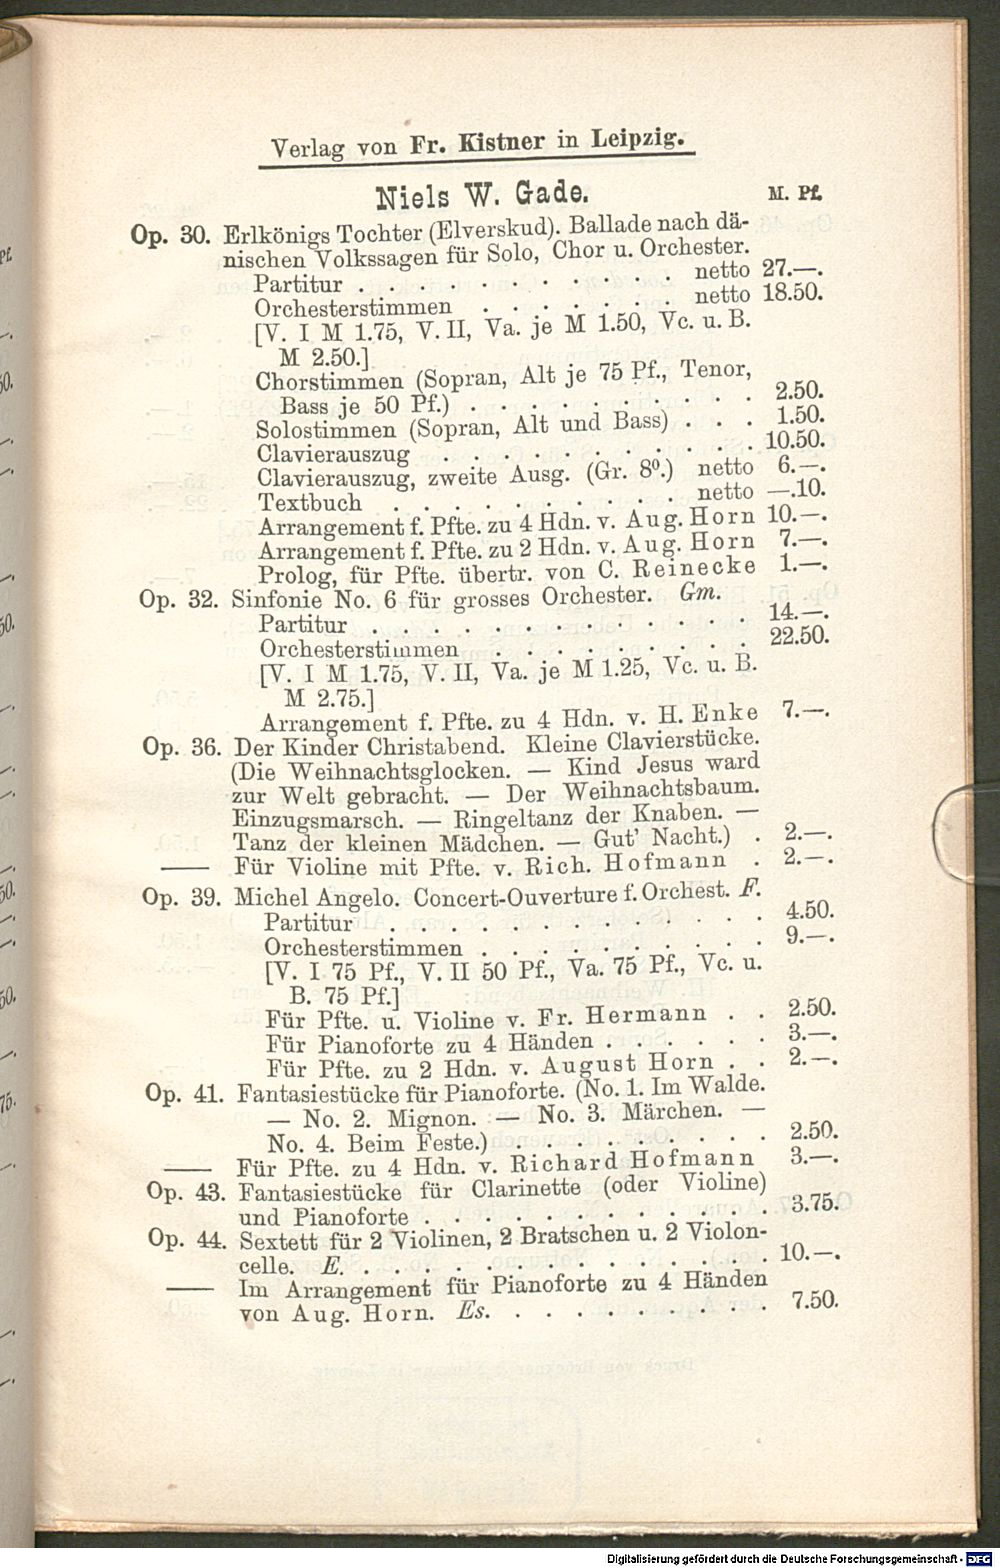 Verlag von Fr. Kistner in Leipzig.
Niels W. Gade. M. Pf.
Op. 30. Erlkönigs Tochter (Elverskud). Ballade nach dä-
nischen Volkssagen für Solo, Chor u. Orchester.
Partitur . . . . . . . . . . . netto 27.—.
Orchesterstimmen . . . . . . . netto 18.50.
[V. I M 1.75, V. II, Va. je M 1.50, Vc. u. B.
M 2.50.]
Chorstimmen (Sopran, Alt je 75 Pf., Tenor,
Bass je 50 Pf.) . . . . . . . . . . 2.50.
Solostimmen (Sopran, Alt und Bass) . . . 1.50.
Clavierauszug . . . . . . . . . . . 10.50.
Clavierauszug, zweite Ausg. (Gr. 8º.) netto 6.—.
Textbuch . . . . . . . . . . netto —.10.
Arrangement f. Pfte. zu 4 Hdn. v. Aug. Horn 10.—.
Arrangement f. Pfte. zu 2 Hdn. v. Aug. Horn 7.—.
Prolog, für Pfte. übertr. von C. Reinecke 1.—.
Op. 32. Sinfonie No. 6 für grosses Orchester. Gm.
Partitur . . . . . . . . . . . . . 14.—.
Orchesterstimmen . . . . . . . . . 22.50.
[V. I M 1.75, V. II, Va. je M 1.25, Vc. u. B.
M 2.75.]
Arrangement f. Pfte. zu 4 Hdn. v. H. Enke 7.—.
Op. 36. Der Kinder Christabend. Kleine Clavierstücke.
(Die Weihnachtsglocken. — Kind Jesus ward
zur Welt gebracht. — Der Weihnachtsbaum.
Einzugsmarsch. — Ringeltanz der Knaben. —
Tanz der kleinen Mädchen. — Gut' Nacht.) . 2.—.
—— Für Violine mit Pfte. v. Rich. Hofmann . 2.—.
Op. 39. Michel Angelo. Concert-Ouverture f. Orchest. F.
Partitur . . . . . . . . . . . . . 4.50.
Orchesterstimmen . . . . . . . . . . 9.—.
[V. I 75 Pf., V. II 50 Pf., Va. 75 Pf., Vc. u.
B. 75 Pf.]
Für Pfte. u. Violine v. Fr. Hermann . . 2.50.
Für Pianoforte zu 4 Händen . . . . . . 3.—.
Für Pfte. zu 2 Hdn. v. August Horn . . 2.—.
Op. 41. Fantasiestücke für Pianoforte. (No. 1. Im Walde.
— No. 2. Mignon. — No. 3. Märchen. —
No. 4. Beim Feste.) . . . . . . . . . 2.50.
—— Für Pfte. zu 4 Hdn. v. Richard Hofmann 3.—.
Op. 43. Fantasiestücke für Clarinette (oder Violine)
und Pianoforte . . . . . . . . . . . . 3.75.
Op. 44. Sextett für 2 Violinen, 2 Bratschen u. 2 Violon-
celle. E. . . . . . . . . . . . . . . 10.—.
—— Im Arrangement für Pianoforte zu 4 Händen
von Aug. Horn. Es. . . . . . . . . . 7.50.
Digitalisierung gefördert durch die Deutsche Forschungsgemeinschaft - DFG